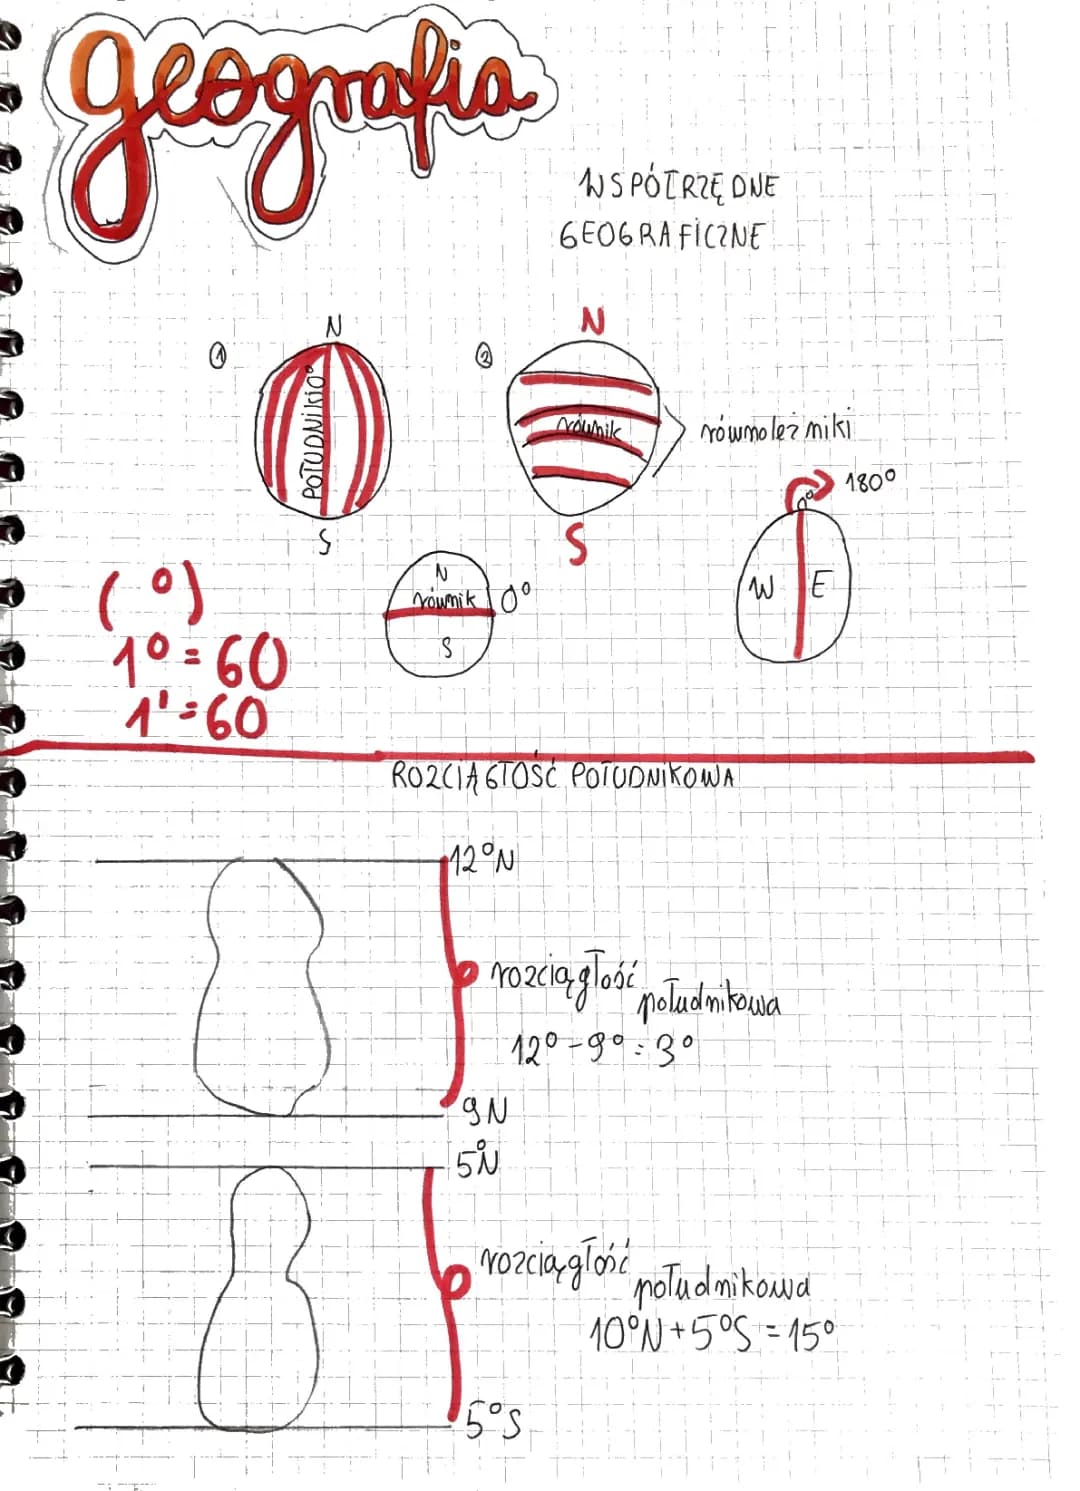 geografia
WSPÓŁRZĘDNE
GEOGRAFICZNE
① N
POŁUDNIKI 0°
S
② N
równik
równoleżniki
S
180°
0°
W E
N
równik 0°
S
(°)
1° = 60
1' = 60
ROZCIĄGŁOŚĆ POŁUDNIKOWA
12°N
rozciągłość
południkowa
12° - 9° = 3°
9N
5°N
rozciągłość
południkowa
10°N + 5°S = 15°
5°S